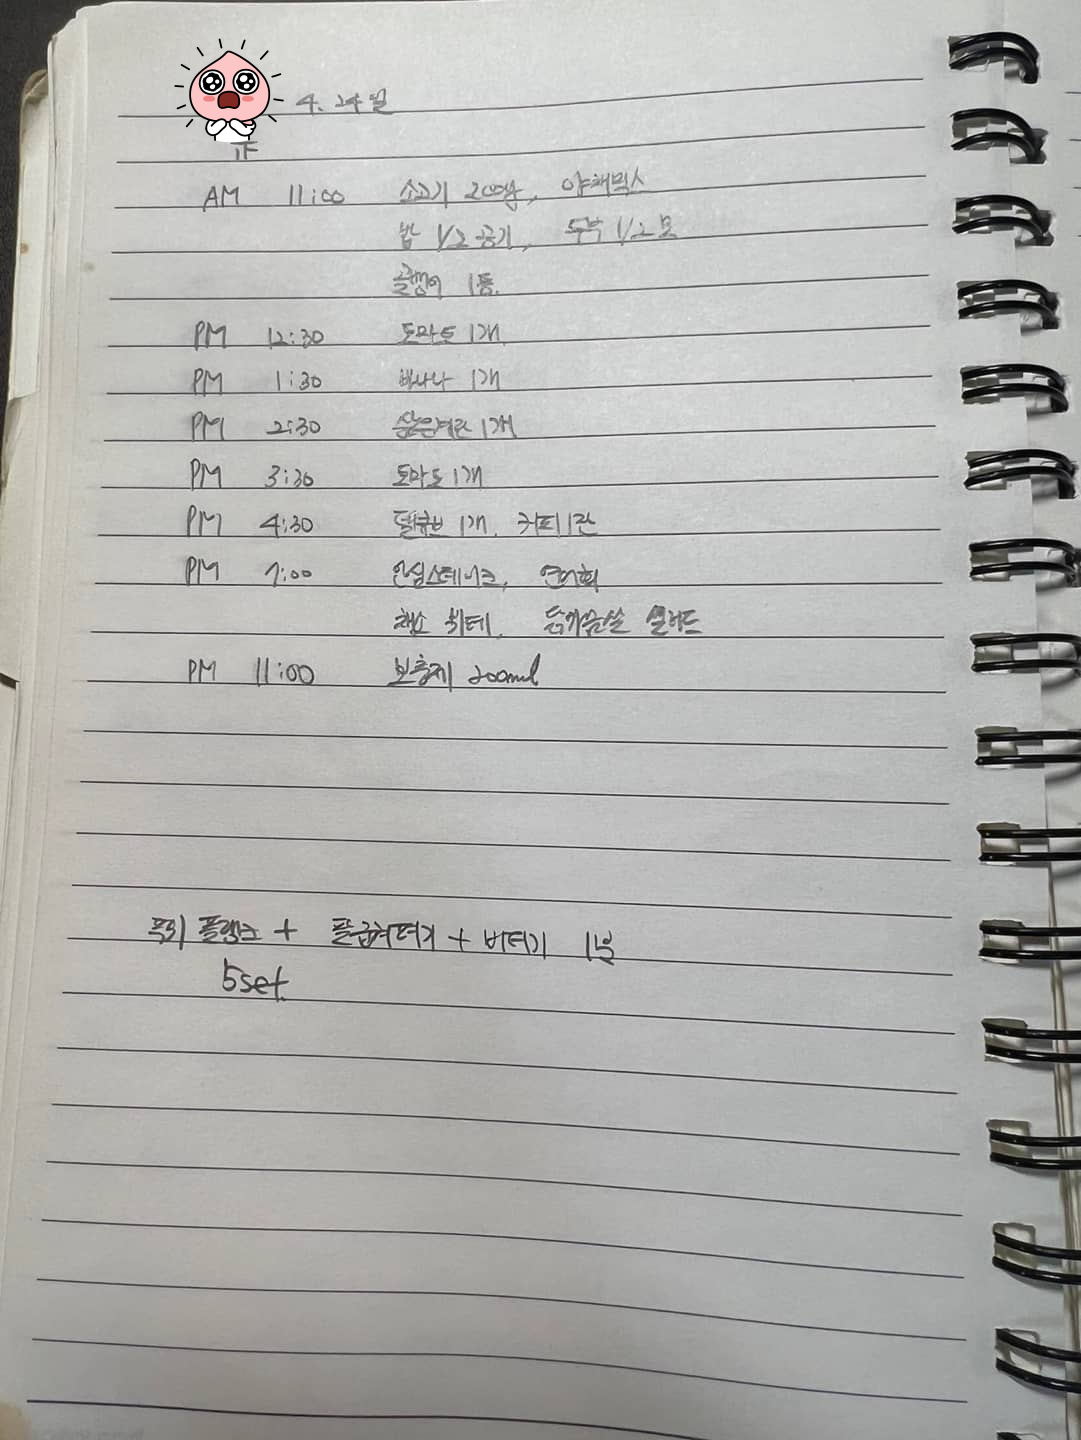 4. 24일
AM 11:00 소고기 200g, 야채믹스
밥 1/2공기, 두부 1/2모
1통.
PM 12:30 토마토 1개
PM 1:30 바나나 1개
PM 2:30 삶은계란 1개
PM 3:30 토마토 1개
PM 4:30 1개, 커피 1잔
PM 7:00 안심스테이크, 연어회
채소, 닭가슴살 샐러드
PM 11:00 보충제 200ml
푸쉬 플랭크 + 팔굽혀펴기 + 버티기 1분
5set.